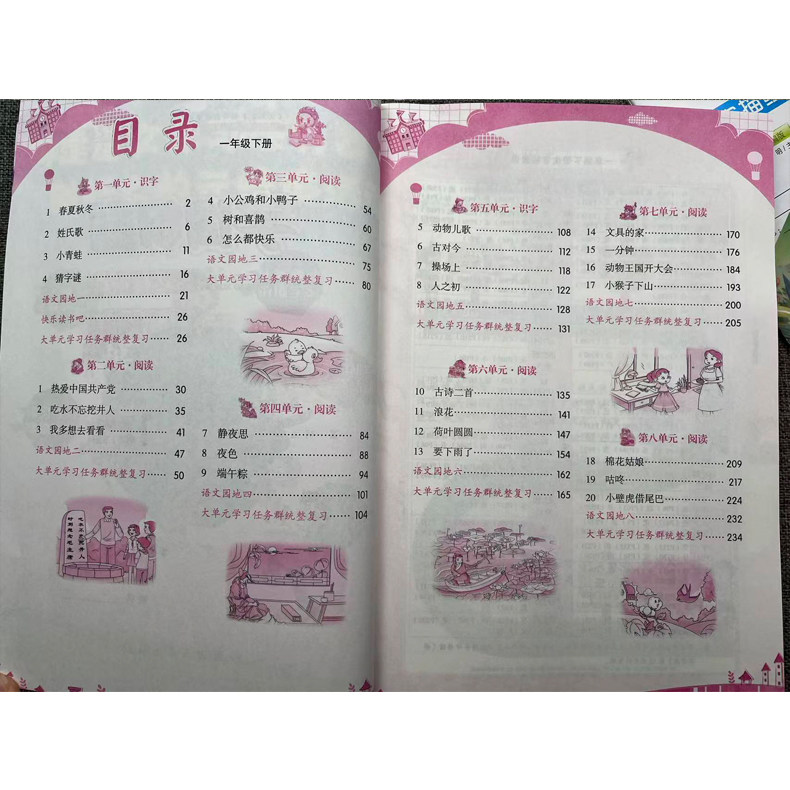 目录 一年级下册
第一单元·识字
1 春夏秋冬 2
2 姓氏歌 6
3 小青蛙 11
4 猜字谜 16
语文园地一 21
快乐读书吧 26
大单元学习任务群统整复习 26
第二单元·阅读
1 热爱中国共产党 30
2 吃水不忘挖井人 35
3 我多想去看看 41
语文园地二 47
大单元学习任务群统整复习 50
吃水不忘挖井人
时刻想念毛主席
第三单元·阅读
4 小公鸡和小鸭子 54
5 树和喜鹊 60
6 怎么都快乐 67
语文园地三 75
大单元学习任务群统整复习 80
第四单元·阅读
7 静夜思 84
8 夜色 88
9 端午粽 94
语文园地四 101
大单元学习任务群统整复习 104
第五单元·识字
5 动物儿歌 108
6 古对今 112
7 操场上 118
8 人之初 122
语文园地五 128
大单元学习任务群统整复习 131
第六单元·阅读
10 古诗二首 135
11 浪花 141
12 荷叶圆圆 147
13 要下雨了 154
语文园地六 162
大单元学习任务群统整复习 165
第七单元·阅读
14 文具的家 170
15 一分钟 176
16 动物王国开大会 184
17 小猴子下山 193
语文园地七 200
大单元学习任务群统整复习 205
第八单元·阅读
18 棉花姑娘 209
19 咕咚 217
20 小壁虎借尾巴 224
语文园地八 232
大单元学习任务群统整复习 234